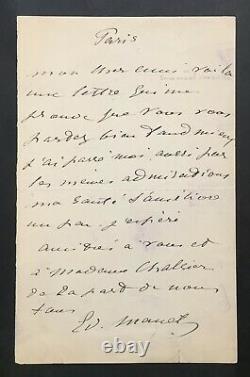 Paris
mon cher ami voilà
une lettre qui me
prouve que vous vous
portez bien tant mieux
j'ai passé moi aussi par
les mêmes admirations
ma santé s'améliore
un peu j'espère
amitiés à vous et
à madame
de la part de nous
tous
Ed. Manet